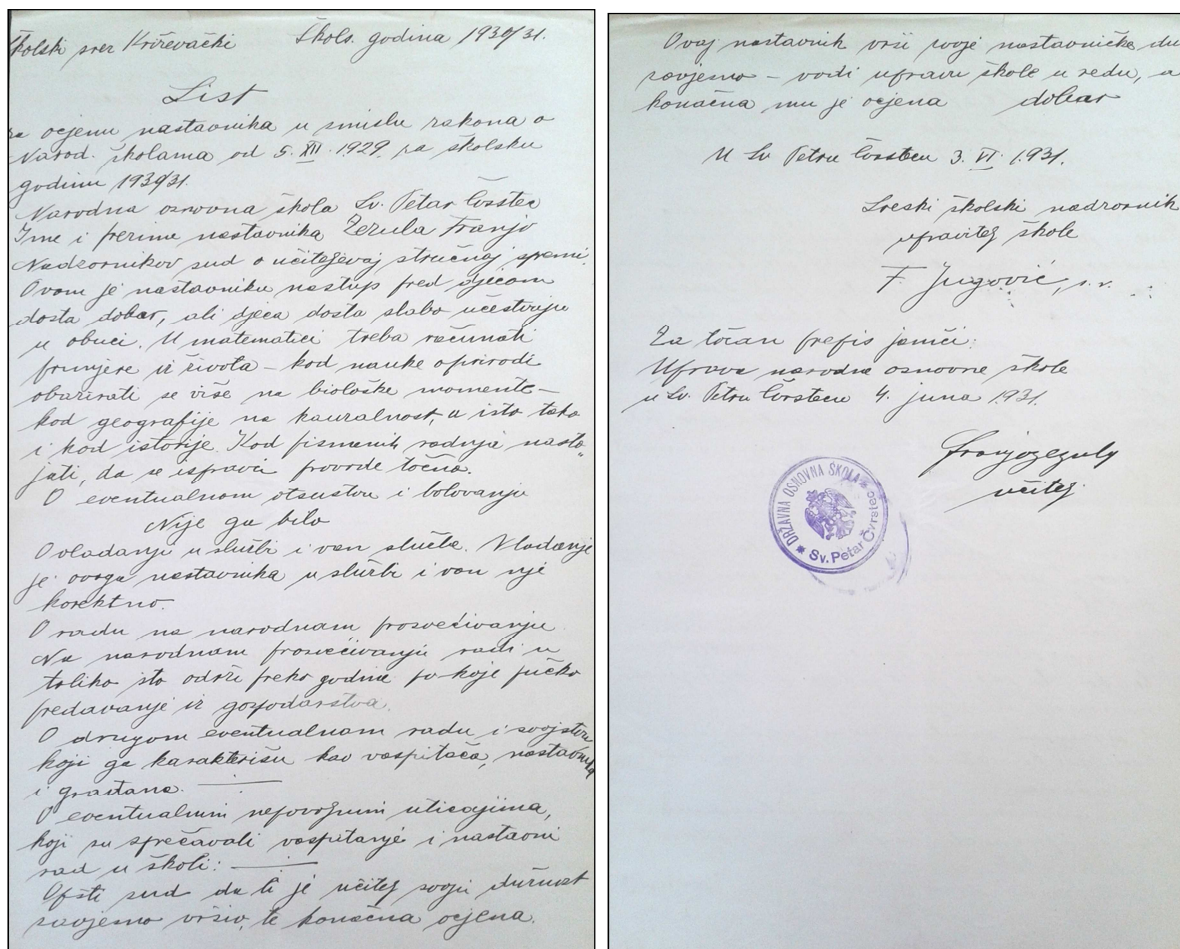 Školski srez Križevački Škols. godina 1930/31.
List
za ocjenu nastavnika u smislu zakona o
Narod. školama od 5. XII. 1929. za školsku
godinu 1930/31.
Narodna osnovna škola Sv. Petar Čvrstec
Ime i prezime nastavnika Zezula Franjo
Nadzornikov sud o učiteljevoj stručnoj spremi.
Ovom je nastavniku nastup pred djecom
dosta dobar, ali djeca dosta slabo učestvuju
u obuci. U matematici treba računati
primjere iz života – kod nauke o prirodi
obazirati se više na biološke momente –
kod geografije na kauzalnost, a isto tako
i kod istorije. Kod pismenih radnja nasto-
jati, da se ispravci provode točno.
O eventualnom otsustvu i bolovanju
Nije ga bilo
O vladanju u službi i van službe. Vladanje
je ovoga nastavnika u službi i van nje
korektno.
O radu na narodnom prosvećivanju.
Na narodnom prosvećivanju radi u
toliko što održi preko godine po koje pučko
predavanje iz gospodarstva.
O drugom eventualnom radu i svojstvu
koji ga karakterišu kao vaspitača, nastavnika
i građana.
O eventualnim nepovoljnim uticajima,
koji su sprečavali vaspitanje i nastavni
rad u školi:
Opšti sud da li je učitelj svoju dužnost
savjesno vršio, te konačna ocjena.
Ovaj nastavnik vrši svoje nastavničke du
savjesno – vodi upravu škole u redu, a
konačna mu je ocjena dobar
U Sv. Petru Čvrstecu 3. VI. 1931.
Sreski školski nadzornik
upravitelj škole
F. Jugović, s. r.
Za točan prepis jamči:
Uprava narodne osnovne škole
u Sv. Petru Čvrstecu 4. juna 1931.
Franjo Zezula
učitelj
DRŽAVNA OSNOVNA ŠKOLA
Sv. Petar Čvrstec